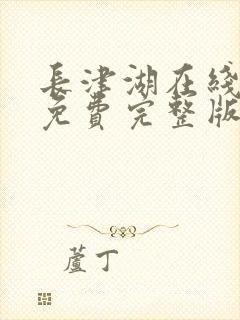 長津湖在綫
免費完整版
蘆丁